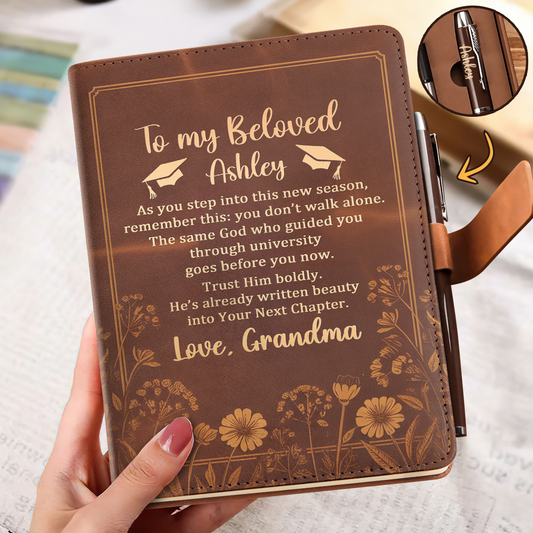 To my Beloved
Ashley
As you step into this new season,
remember this: you don't walk alone.
The same God who guided you
through university
goes before you now.
Trust Him boldly.
He's already written beauty
into Your Next Chapter.
Love, Grandma
Ashley